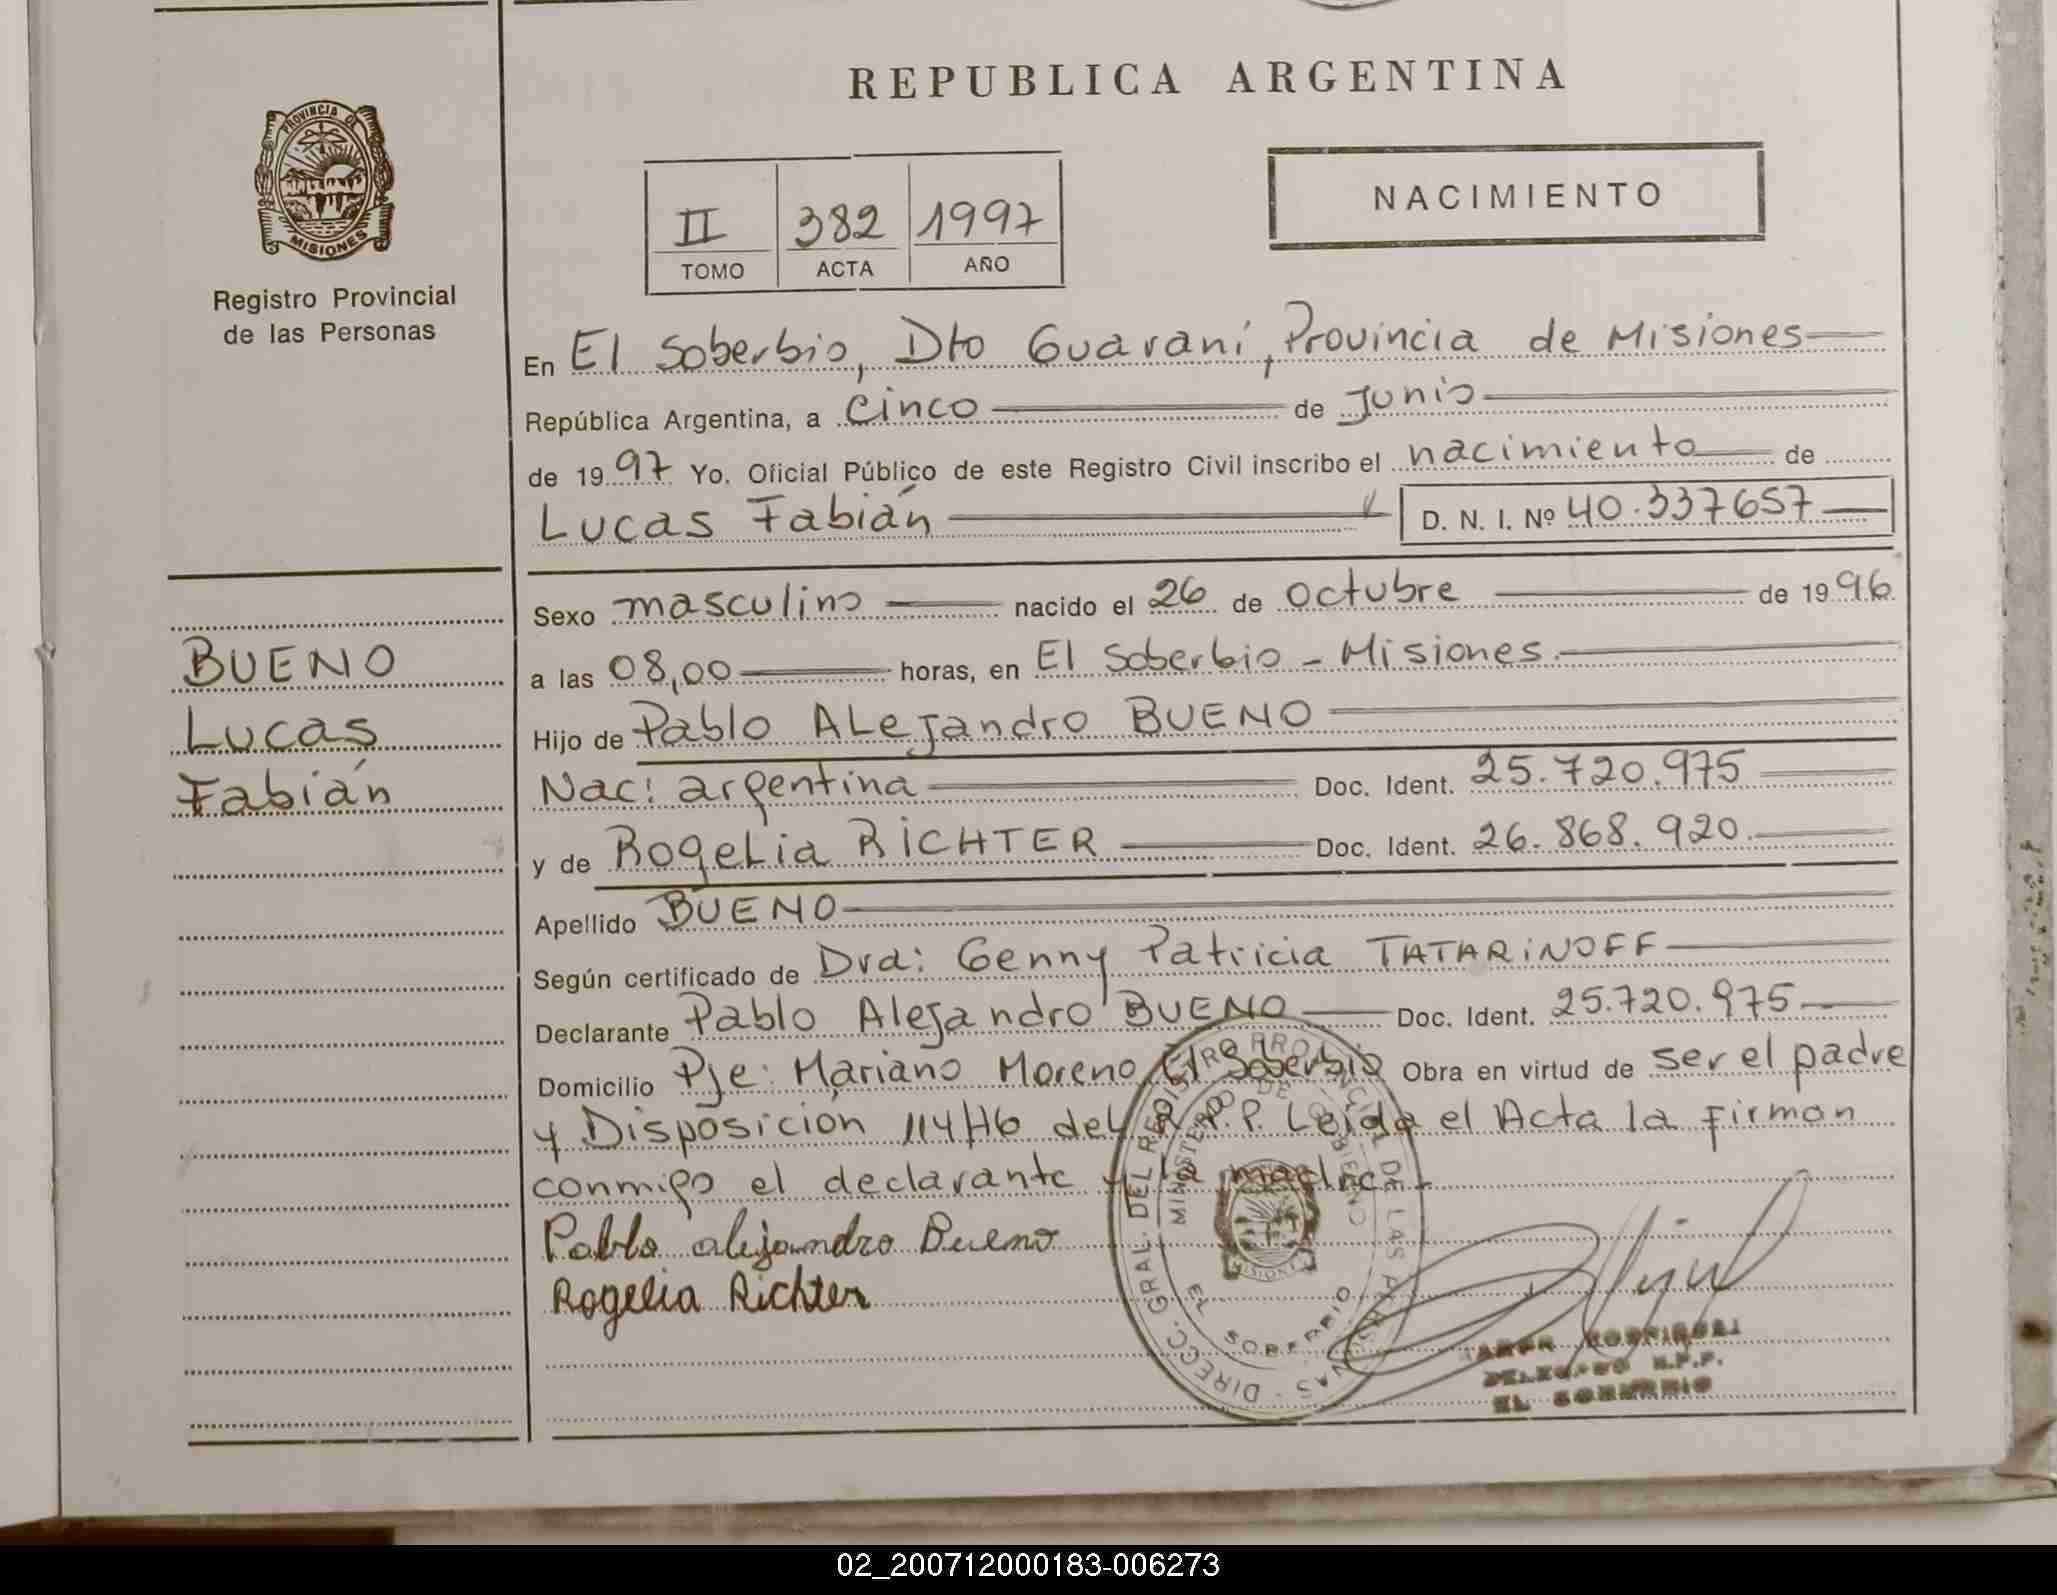 REPUBLICA ARGENTINA
PROVINCIA DE
MISIONES
Registro Provincial
de las Personas
II 382 1997
TOMO ACTA AÑO
NACIMIENTO
En El Soberbio, Dto Guaraní, Provincia de Misiones
República Argentina, a cinco de Junio
de 1997 Yo. Oficial Público de este Registro Civil inscribo el nacimiento de
Lucas Fabián D. N. I. Nº 40.337657
Sexo masculino nacido el 26 de octubre de 1996
a las 08,00 horas, en El Soberbio - Misiones.
Hijo de Pablo Alejandro BUENO
Nac: argentina Doc. Ident. 25.720.975
y de Rogelia RICHTER Doc. Ident. 26.868.920.
Apellido BUENO
Según certificado de Dra: Genny Patricia TATARINOFF
Declarante Pablo Alejandro BUENO Doc. Ident. 25.720.975
Domicilio Pje: Mariano Moreno El Soberbio Obra en virtud de ser el padre
y Disposición 114/46 del R.P.P. Leida el Acta la firman
conmigo el declarante y la madre.
Pablo alejandro Bueno
Rogelia Richter
BUENO
Lucas
Fabián
DIRECC. GRAL. DEL REGISTRO PROVINCIAL DE LAS PERSONAS
MINISTERIO DE GOBIERNO
EL SOBERBIO
MISIONES
DELEGADO R.P.P.
EL SOBERBIO
02_200712000183-006273